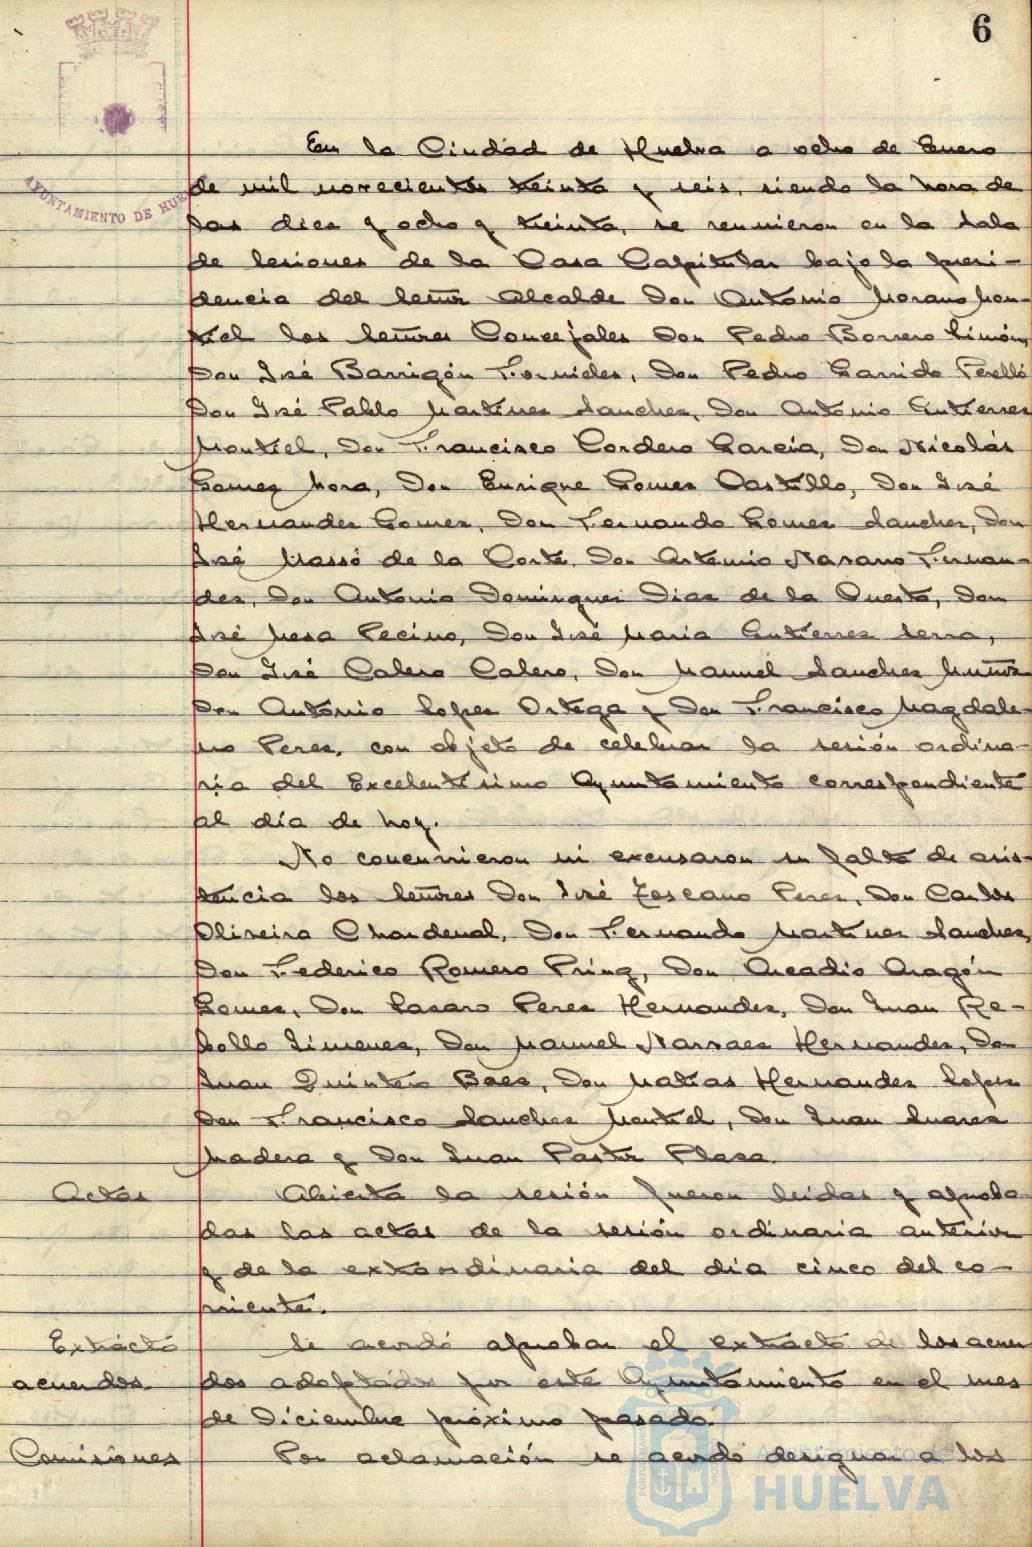 6
AYUNTAMIENTO DE HUELVA
En la Ciudad de Huelva a ocho de Enero
de mil novecientos treinta y seis, siendo la hora de
las diez y ocho y treinta, se reunieron en la Sala
de Sesiones de la Casa Capitular bajo la presi-
dencia del Señor Alcalde Don Antonio Morano Mon-
tiel los Señores Concejales Don Pedro Borrero Limón,
Don José Barrigón Fornieles, Don Pedro Garrido Perelló
Don José Pablo Martinez Sanchez, Don Antonio Gutierrez
Montiel, Don Francisco Cordero García, Don Nicolás
Gomez Mora, Don Enrique Gomez Castillo, Don José
Hernandez Gomez, Don Fernando Gomez Sanchez, Don
José Massó de la Corte, Don Artemio Navarro Fernan-
dez, Don Antonio Dominguez Diaz de la Questa, Don
José Mesa Pecino, Don José Maria Gutierrez Serra,
Don José Calero Calero, Don Manuel Sanchez Muñoz
Don Antonio Lopez Ortega y Don Francisco Magdale-
no Perez, con objeto de celebrar la sesión ordina-
ria del Excelentísimo Ayuntamiento correspondiente
al día de hoy.
No concurrieron ni excusaron su falta de asis-
tencia los Señores Don José Toscano Perez, Don Carlos
Oliveira Chardenal, Don Fernando Martinez Sanchez,
Don Federico Romero Prinz, Don Arcadio Aragón
Gomez, Don Lazaro Perez Hernandez, Don Juan Re-
bollo Jimenez, Don Manuel Narvaez Hernandez, Don
Juan Quintero Baez, Don Matias Hernandez Lopez
Don Francisco Sanchez Montiel, Don Juan Suarez
Madera y Don Juan Pastor Plaza.
Actas Abierta la sesión fueron leidas y aproba
das las actas de la sesión ordinaria anterior
y de la extraordinaria del día cinco del co-
rriente.
Extracto Se acordó aprobar el extracto de los acuer
acuerdos. dos adoptados por este Ayuntamiento en el mes
de Diciembre próximo pasado.
Comisiones Por aclamación se acordó designar a los
Ayuntamiento de
HUELVA